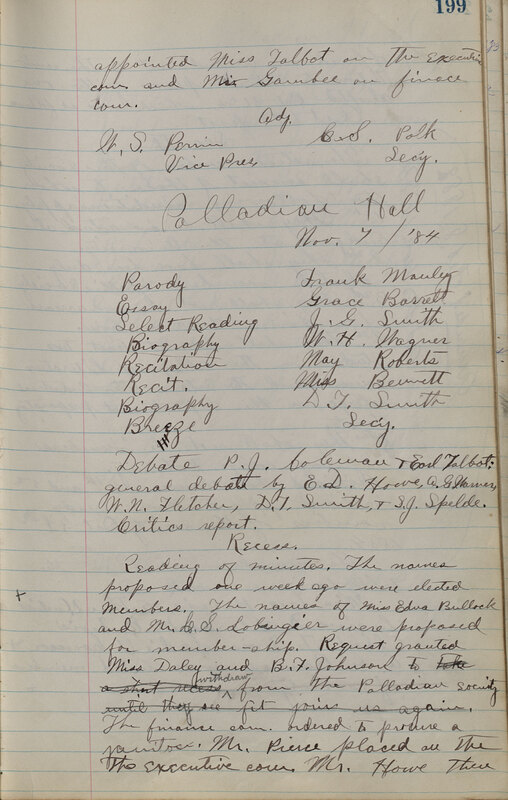 199
appointed Miss Talbot on the executive
com. and Mr. Gambee on finace
com.
Adj.
W. S. Perrin C. S. Polk
Vice Pres, Secy.
Palladian Hall
Nov. 7 / '84
Parody Frank Manley
Essay Grace Barrett
Select Reading J. G. Smith
Biography W. H. Wagner
Recitation May Roberts
Recit. Miss Bennett
Biography D. T. Smith
Breeze Secy.
Debate P. J. Coleman & Earl Talbot:
general debate by E. D. Howe, A. G. Warner,
W. N. Fletcher, D. T. Smith, & S. J. Spelde.
Critics report.
Recess.
Reading of minutes. The names
proposed one week ago were elected
members. The names of Miss Edna Bullock
and Mr. C. S. Lobingier were proposed
for member-ship. Request granted
Miss Daley and B. F. Johnson to take
a short recess withdraw from the Palladian society
until they see fit join us again.
The finance com. ordered to procure a
janitor. Mr. Pierce placed on the
the executive com. Mr. Howe then